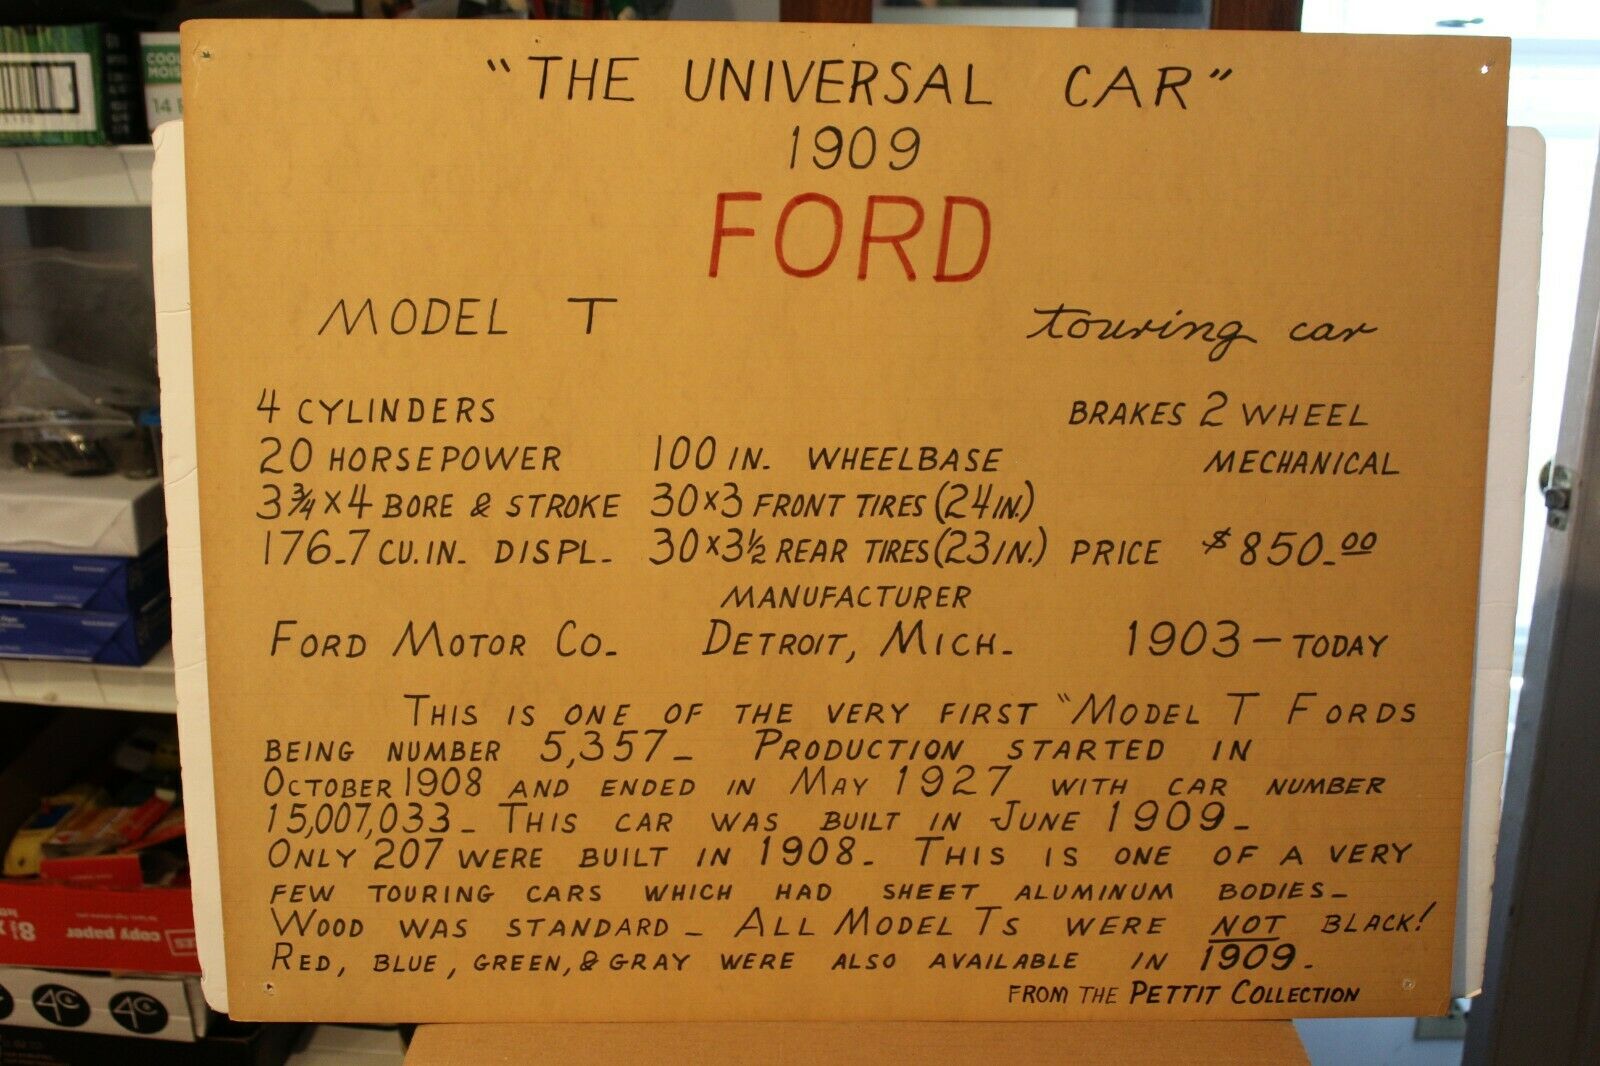 "THE UNIVERSAL CAR"
1909
FORD
MODEL T touring car
4 CYLINDERS BRAKES 2 WHEEL
20 HORSEPOWER 100 IN. WHEELBASE MECHANICAL
3¾x4 BORE & STROKE 30x3 FRONT TIRES (24IN.)
176.7 CU.IN. DISPL. 30x3½ REAR TIRES (23IN.) PRICE $850.00
MANUFACTURER
FORD MOTOR CO. DETROIT, MICH. 1903 - TODAY
THIS IS ONE OF THE VERY FIRST "MODEL T FORDS
BEING NUMBER 5,357. PRODUCTION STARTED IN
OCTOBER 1908 AND ENDED IN MAY 1927 WITH CAR NUMBER
15,007,033. THIS CAR WAS BUILT IN JUNE 1909.
ONLY 207 WERE BUILT IN 1908. THIS IS ONE OF A VERY
FEW TOURING CARS WHICH HAD SHEET ALUMINUM BODIES.
WOOD WAS STANDARD. ALL MODEL TS WERE NOT BLACK!
RED, BLUE, GREEN, & GRAY WERE ALSO AVAILABLE IN 1909.
FROM THE PETTIT COLLECTION
COOL
MOIS
14
copy paper
8½
4C
4C